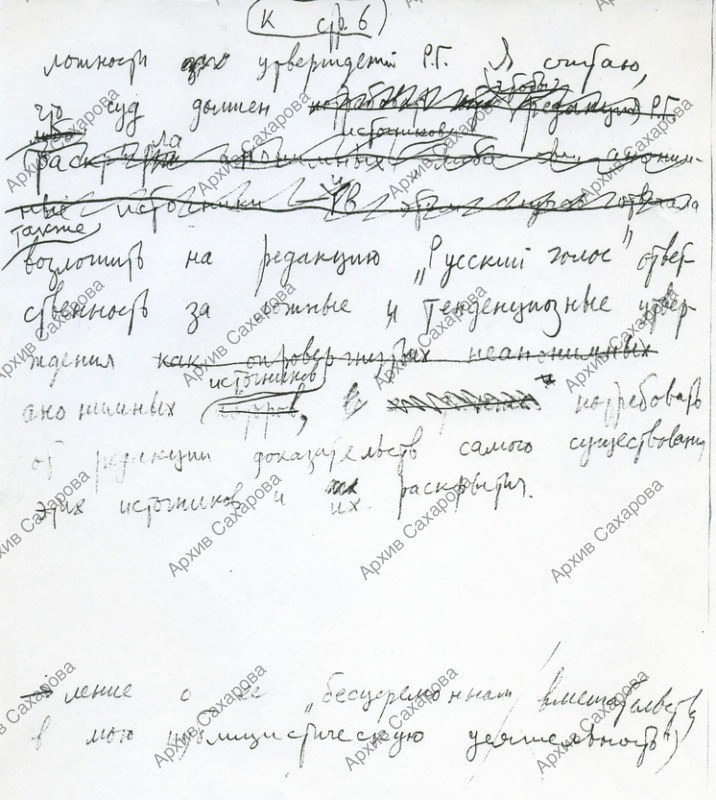 К стр. 6)
ложности этих утверждений Р.Г. Я считаю,
чтобы
что суд должен потребовать редакцию Р.Г.
источников
раскрыла анонимных либо анонимные источники
также
возложить на редакцию „Русский голос" ответ-
ственность за ложные и тенденциозные утвер-
ждения как опровергнутых неанонимных
источников
анонимных авторов, и потребовать
от редакции доказательств самого существования
этих источников и их раскрытия.
ление о ее „бесцеремонном вмешательстве
в мою публицистическую деятельность")
Архив Сахарова